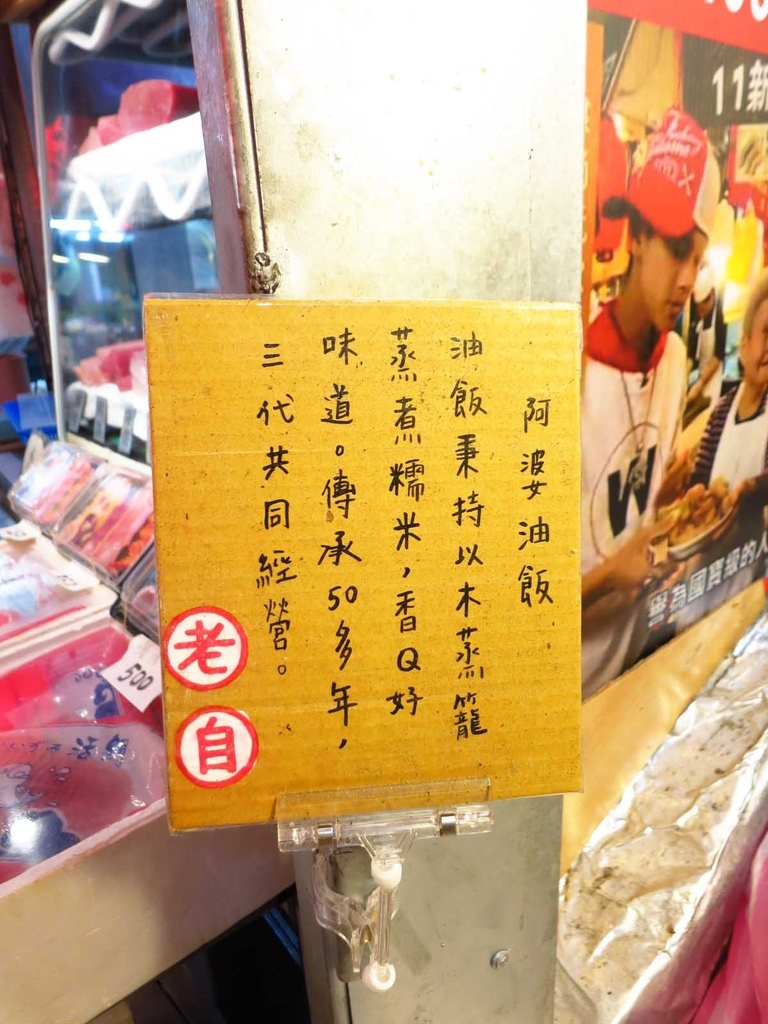 阿婆油飯
油飯秉持以木蒸籠
蒸煮糯米，香Q好
味道。傳承50多年，
三代共同經營。
老
自
500
11新
譽為國寶級的人
W